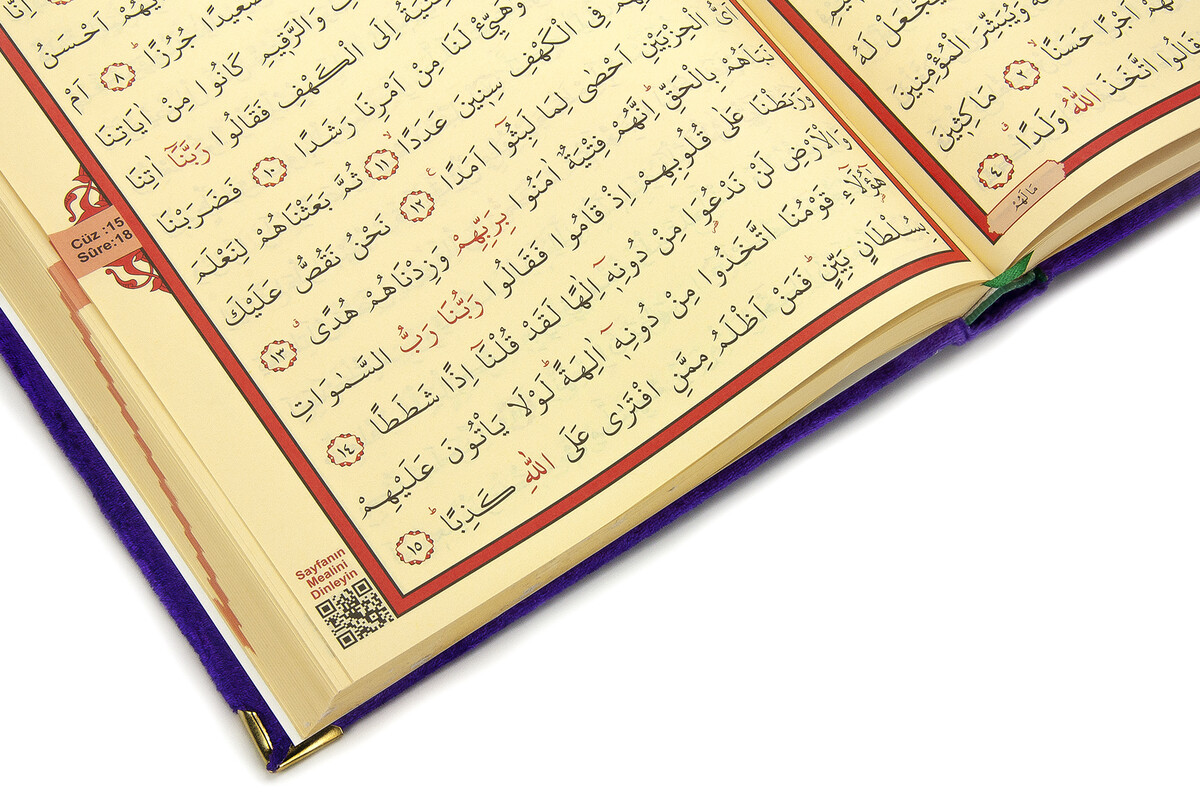 يَجْعَلْ لَهُ
وَيُبَشِّرَ الْمُؤْمِنِينَ
اَجْرًا حَسَنًاۙ ﴿٢﴾ مَاكِثِينَ
قَالُوا اتَّخَذَ اللّٰهُ وَلَدًاۗ ﴿٤﴾
مَالَهُمْ
اَحْسَنُ
جُرُزًاۜ ﴿٨﴾ اَمْ
وَالرَّقِيمِ كَانُوا مِنْ اٰيَاتِنَا
اِلَى الْكَهْفِ فَقَالُوا رَبَّنَٓا اٰتِنَا
وَهَيِّئْ لَنَا مِنْ اَمْرِنَا رَشَدًا ﴿١٠﴾ فَضَرَبْنَا
فِى الْكَهْفِ سِنِينَ عَدَدًاۙ ﴿١١﴾ ثُمَّ بَعَثْنَاهُمْ لِنَعْلَمَ
اَىُّ الْحِزْبَيْنِ اَحْصٰى لِمَا لَبِثُٓوا اَمَدًا۟ ﴿١٢﴾ نَحْنُ نَقُصُّ عَلَيْكَ
نَبَاَهُمْ بِالْحَقِّۜ اِنَّهُمْ فِتْيَةٌ اٰمَنُوا بِرَبِّهِمْ وَزِدْنَاهُمْ هُدًىۗ ﴿١٣﴾
وَرَبَطْنَا عَلٰى قُلُوبِهِمْ اِذْ قَامُوا فَقَالُوا رَبُّنَا رَبُّ السَّمٰوَاتِ
وَالْاَرْضِ لَنْ نَدْعُوَا۬ مِنْ دُونِه۪ٓ اِلٰهًا لَقَدْ قُلْنَٓا اِذًا شَطَطًا ﴿١٤﴾
هٰٓؤُ۬لَٓاءِ قَوْمُنَا اتَّخَذُوا مِنْ دُونِه۪ٓ اٰلِهَةًۜ لَوْلَا يَاْتُونَ عَلَيْهِمْ
بِسُلْطَانٍ بَيِّنٍۜ فَمَنْ اَظْلَمُ مِمَّنِ افْتَرٰى عَلَى اللّٰهِ كَذِبًاۜ ﴿١٥﴾
Cüz :15
Sûre:18
Sayfanın
Mealini
Dinleyin